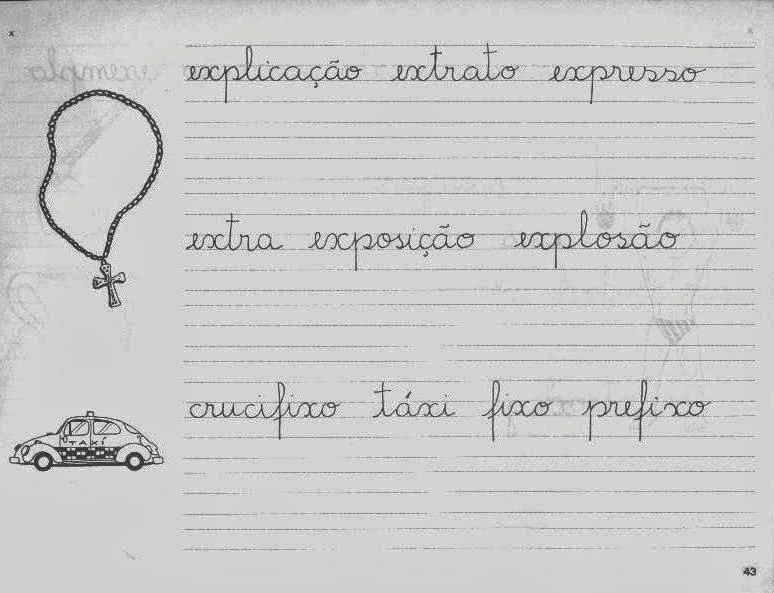 x
explicação extrato expresso
extra exposição explosão
crucifixo táxi fixo prefixo
TAXÍ
43